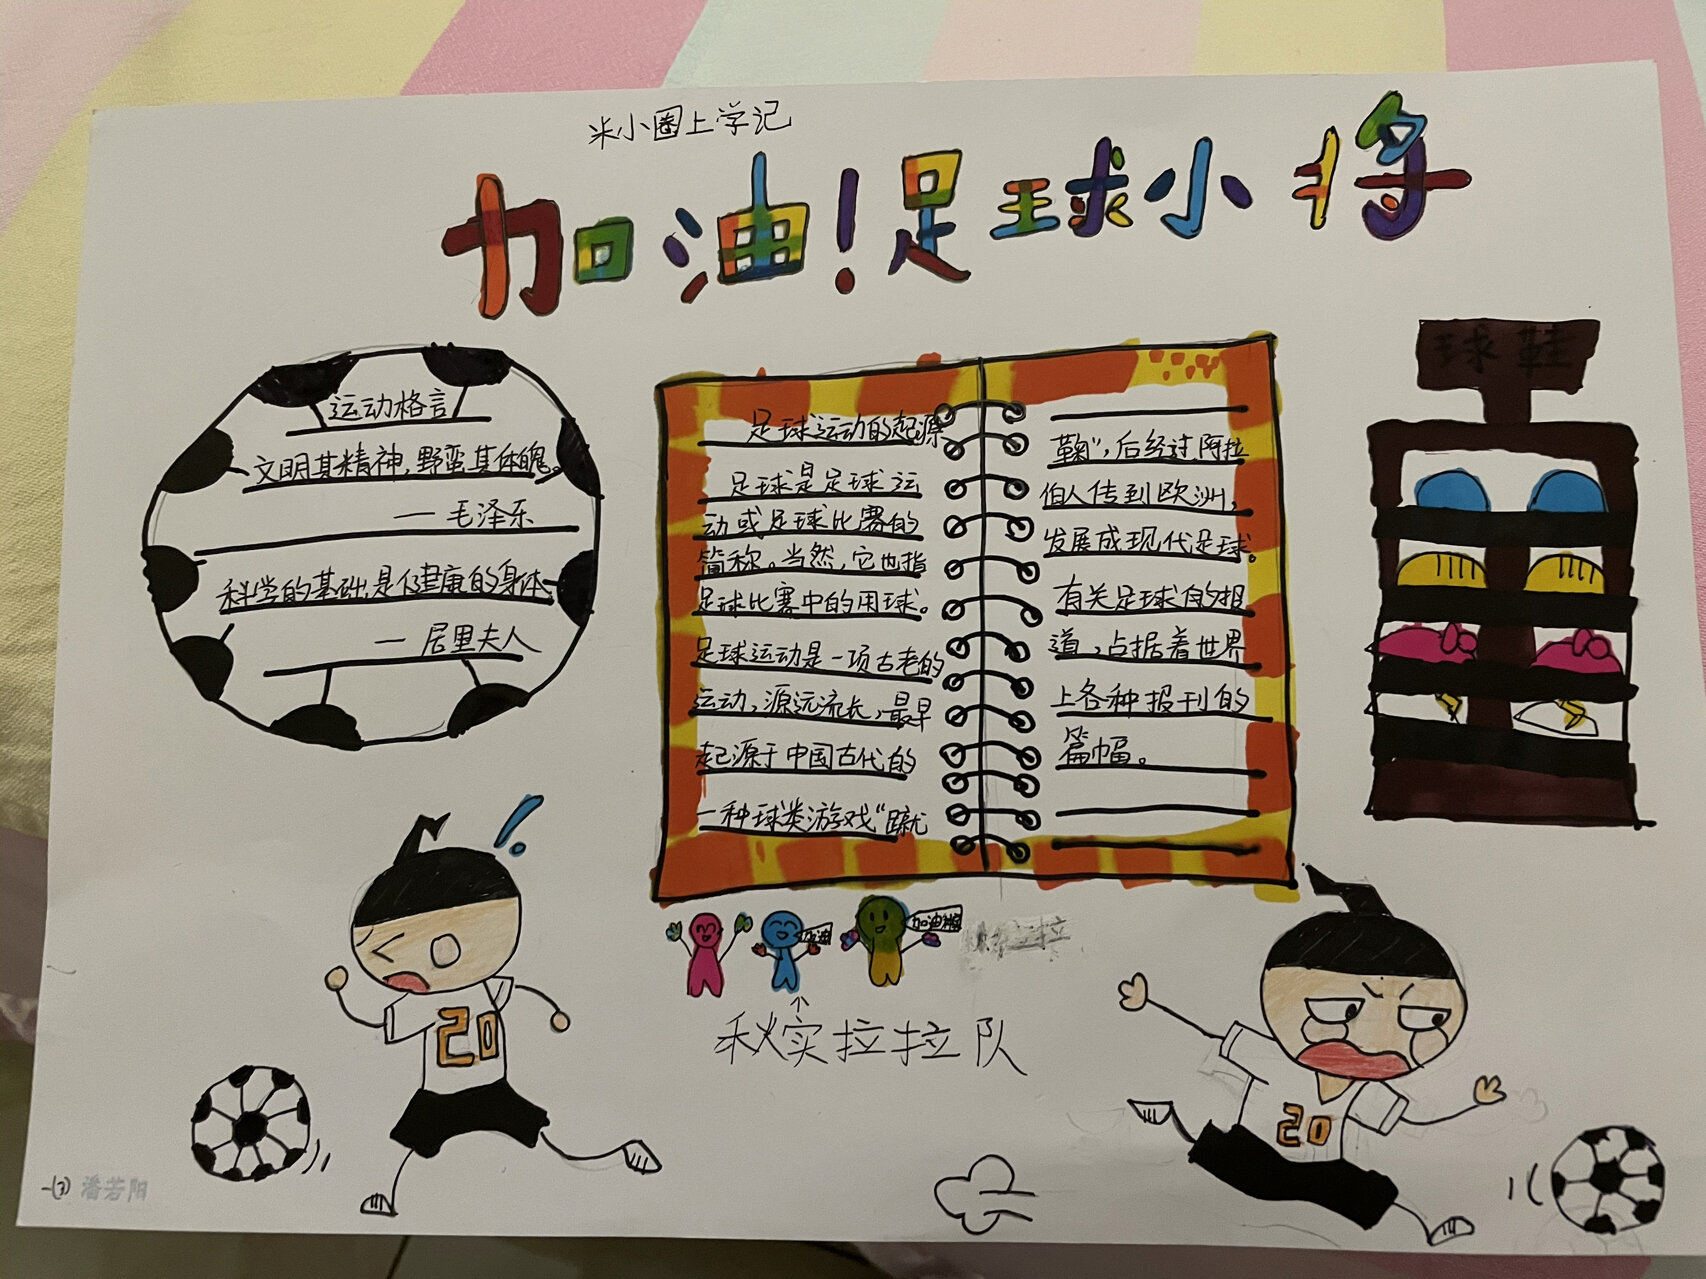 米小圈上学记
加油!足球小将
运动格言
文明其精神,野蛮其体魄。
— 毛泽东
科学的基础是健康的身体
— 居里夫人
足球运动的起源
足球是足球运
动或足球比赛的
简称。当然,它也指
足球比赛中的用球。
足球运动是一项古老的
运动,源远流长,最早
起源于中国古代的
一种球类游戏“蹴
鞠”,后经过阿拉
伯人传到欧洲,
发展成现代足球。
有关足球的报
道,占据着世界
上各种报刊的
篇幅。
球鞋
加油
加油
秋实拉拉队
20
20
一(3) 潘若阳